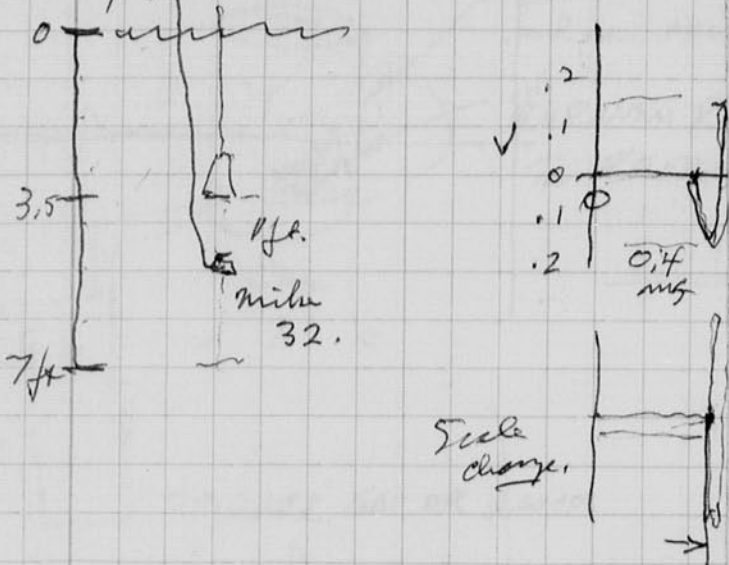 0
3,5
7 ft
1 ft.
mike
32.
V
.2
.1
0
.1
.2
0
0.4
ms
Scale
change.